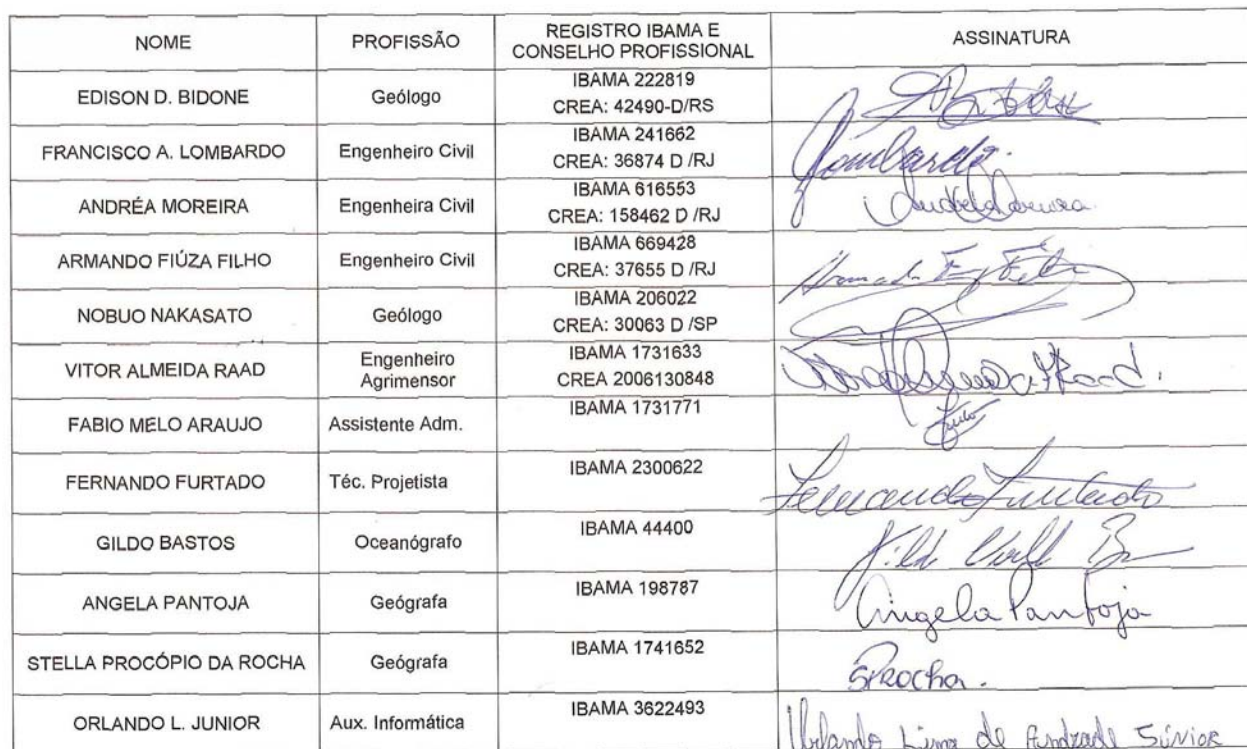 NOME PROFISSÃO REGISTRO IBAMA E CONSELHO PROFISSIONAL ASSINATURA
EDISON D. BIDONE Geólogo IBAMA 222819
CREA: 42490-D/RS
FRANCISCO A. LOMBARDO Engenheiro Civil IBAMA 241662
CREA: 36874 D /RJ
Lombardo.
ANDRÉA MOREIRA Engenheira Civil IBAMA 616553
CREA: 158462 D /RJ
ARMANDO FIÚZA FILHO Engenheiro Civil IBAMA 669428
CREA: 37655 D /RJ
NOBUO NAKASATO Geólogo IBAMA 206022
CREA: 30063 D /SP
VITOR ALMEIDA RAAD Engenheiro Agrimensor IBAMA 1731633
CREA 2006130848
FABIO MELO ARAUJO Assistente Adm. IBAMA 1731771
FERNANDO FURTADO Téc. Projetista IBAMA 2300622
Fernando Furtado
GILDO BASTOS Oceanógrafo IBAMA 44400
ANGELA PANTOJA Geógrafa IBAMA 198787
Angela Pantoja
STELLA PROCÓPIO DA ROCHA Geógrafa IBAMA 1741652
SPRocha.
ORLANDO L. JUNIOR Aux. Informática IBAMA 3622493
Orlando Lima de Andrade Júnior